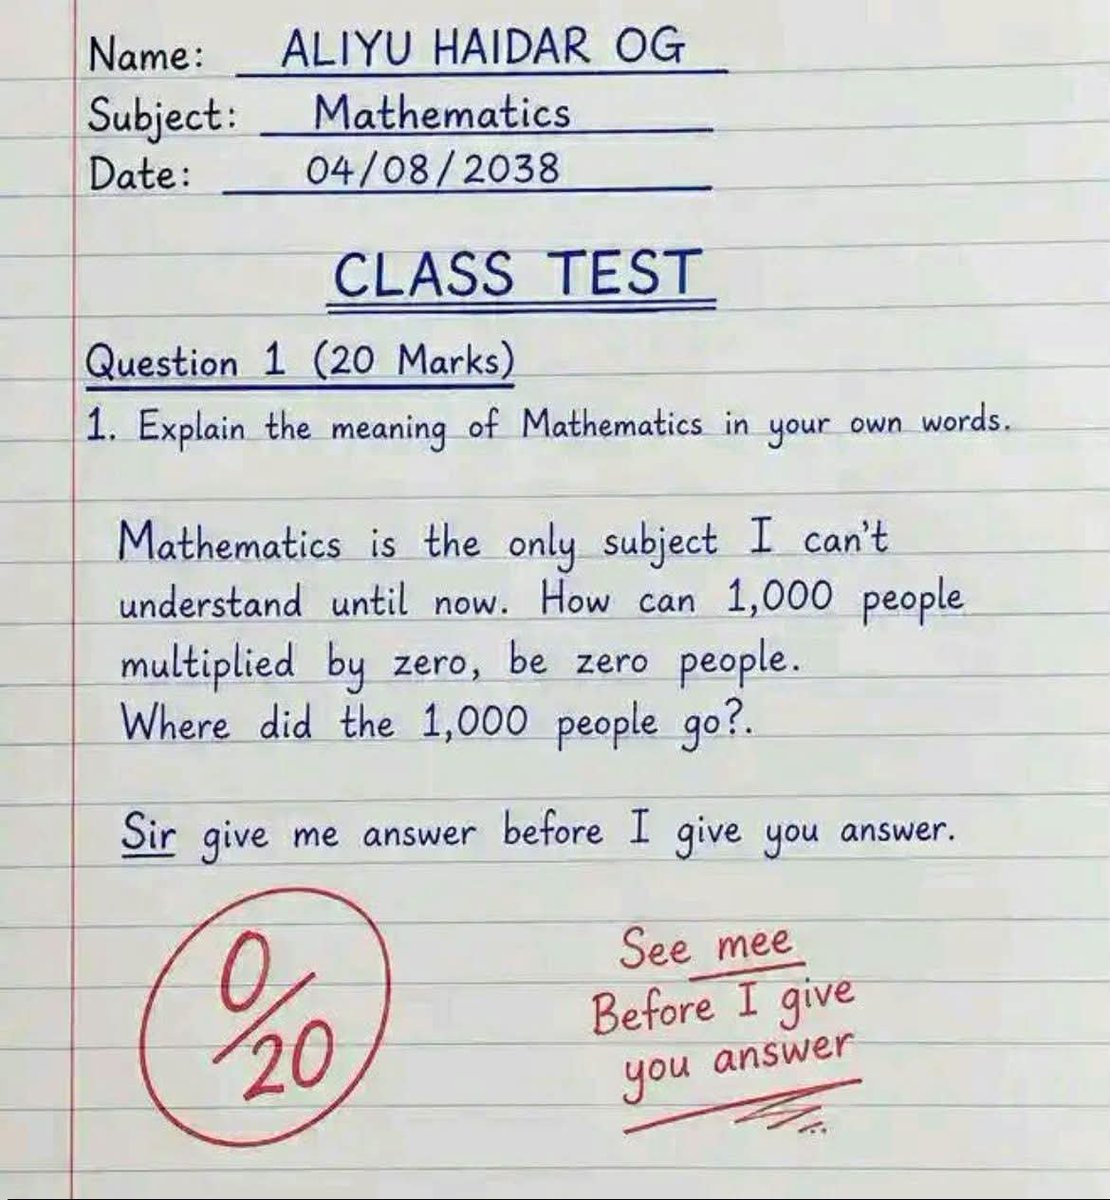 Name: ALIYU HAIDAR OG
Subject: Mathematics
Date: 04/08/2038
CLASS TEST
Question 1 (20 Marks)
1. Explain the meaning of Mathematics in your own words.
Mathematics is the only subject I can't
understand until now. How can 1,000 people
multiplied by zero, be zero people.
Where did the 1,000 people go?.
Sir give me answer before I give you answer.
0/20
See mee
Before I give
you answer